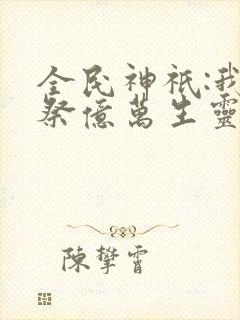 全民神祇:我
祭億萬生靈
陳攀霄